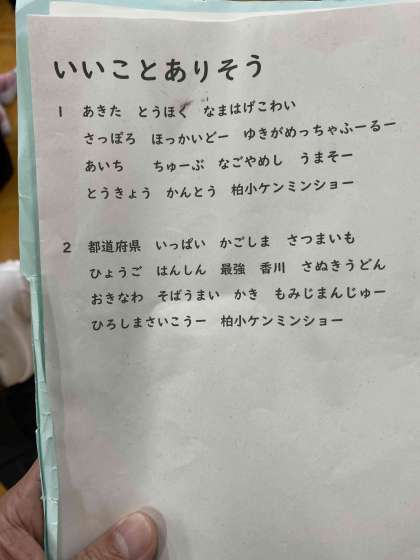 いいことありそう
1 あきた とうほく なまはげこわい
さっぽろ ほっかいどー ゆきがめっちゃふーるー
あいち ちゅーぶ なごやめし うまそー
とうきょう かんとう 柏小ケンミンショー
2 都道府県 いっぱい かごしま さつまいも
ひょうご はんしん 最強 香川 さぬきうどん
おきなわ そばうまい かき もみじまんじゅー
ひろしまさいこうー 柏小ケンミンショー